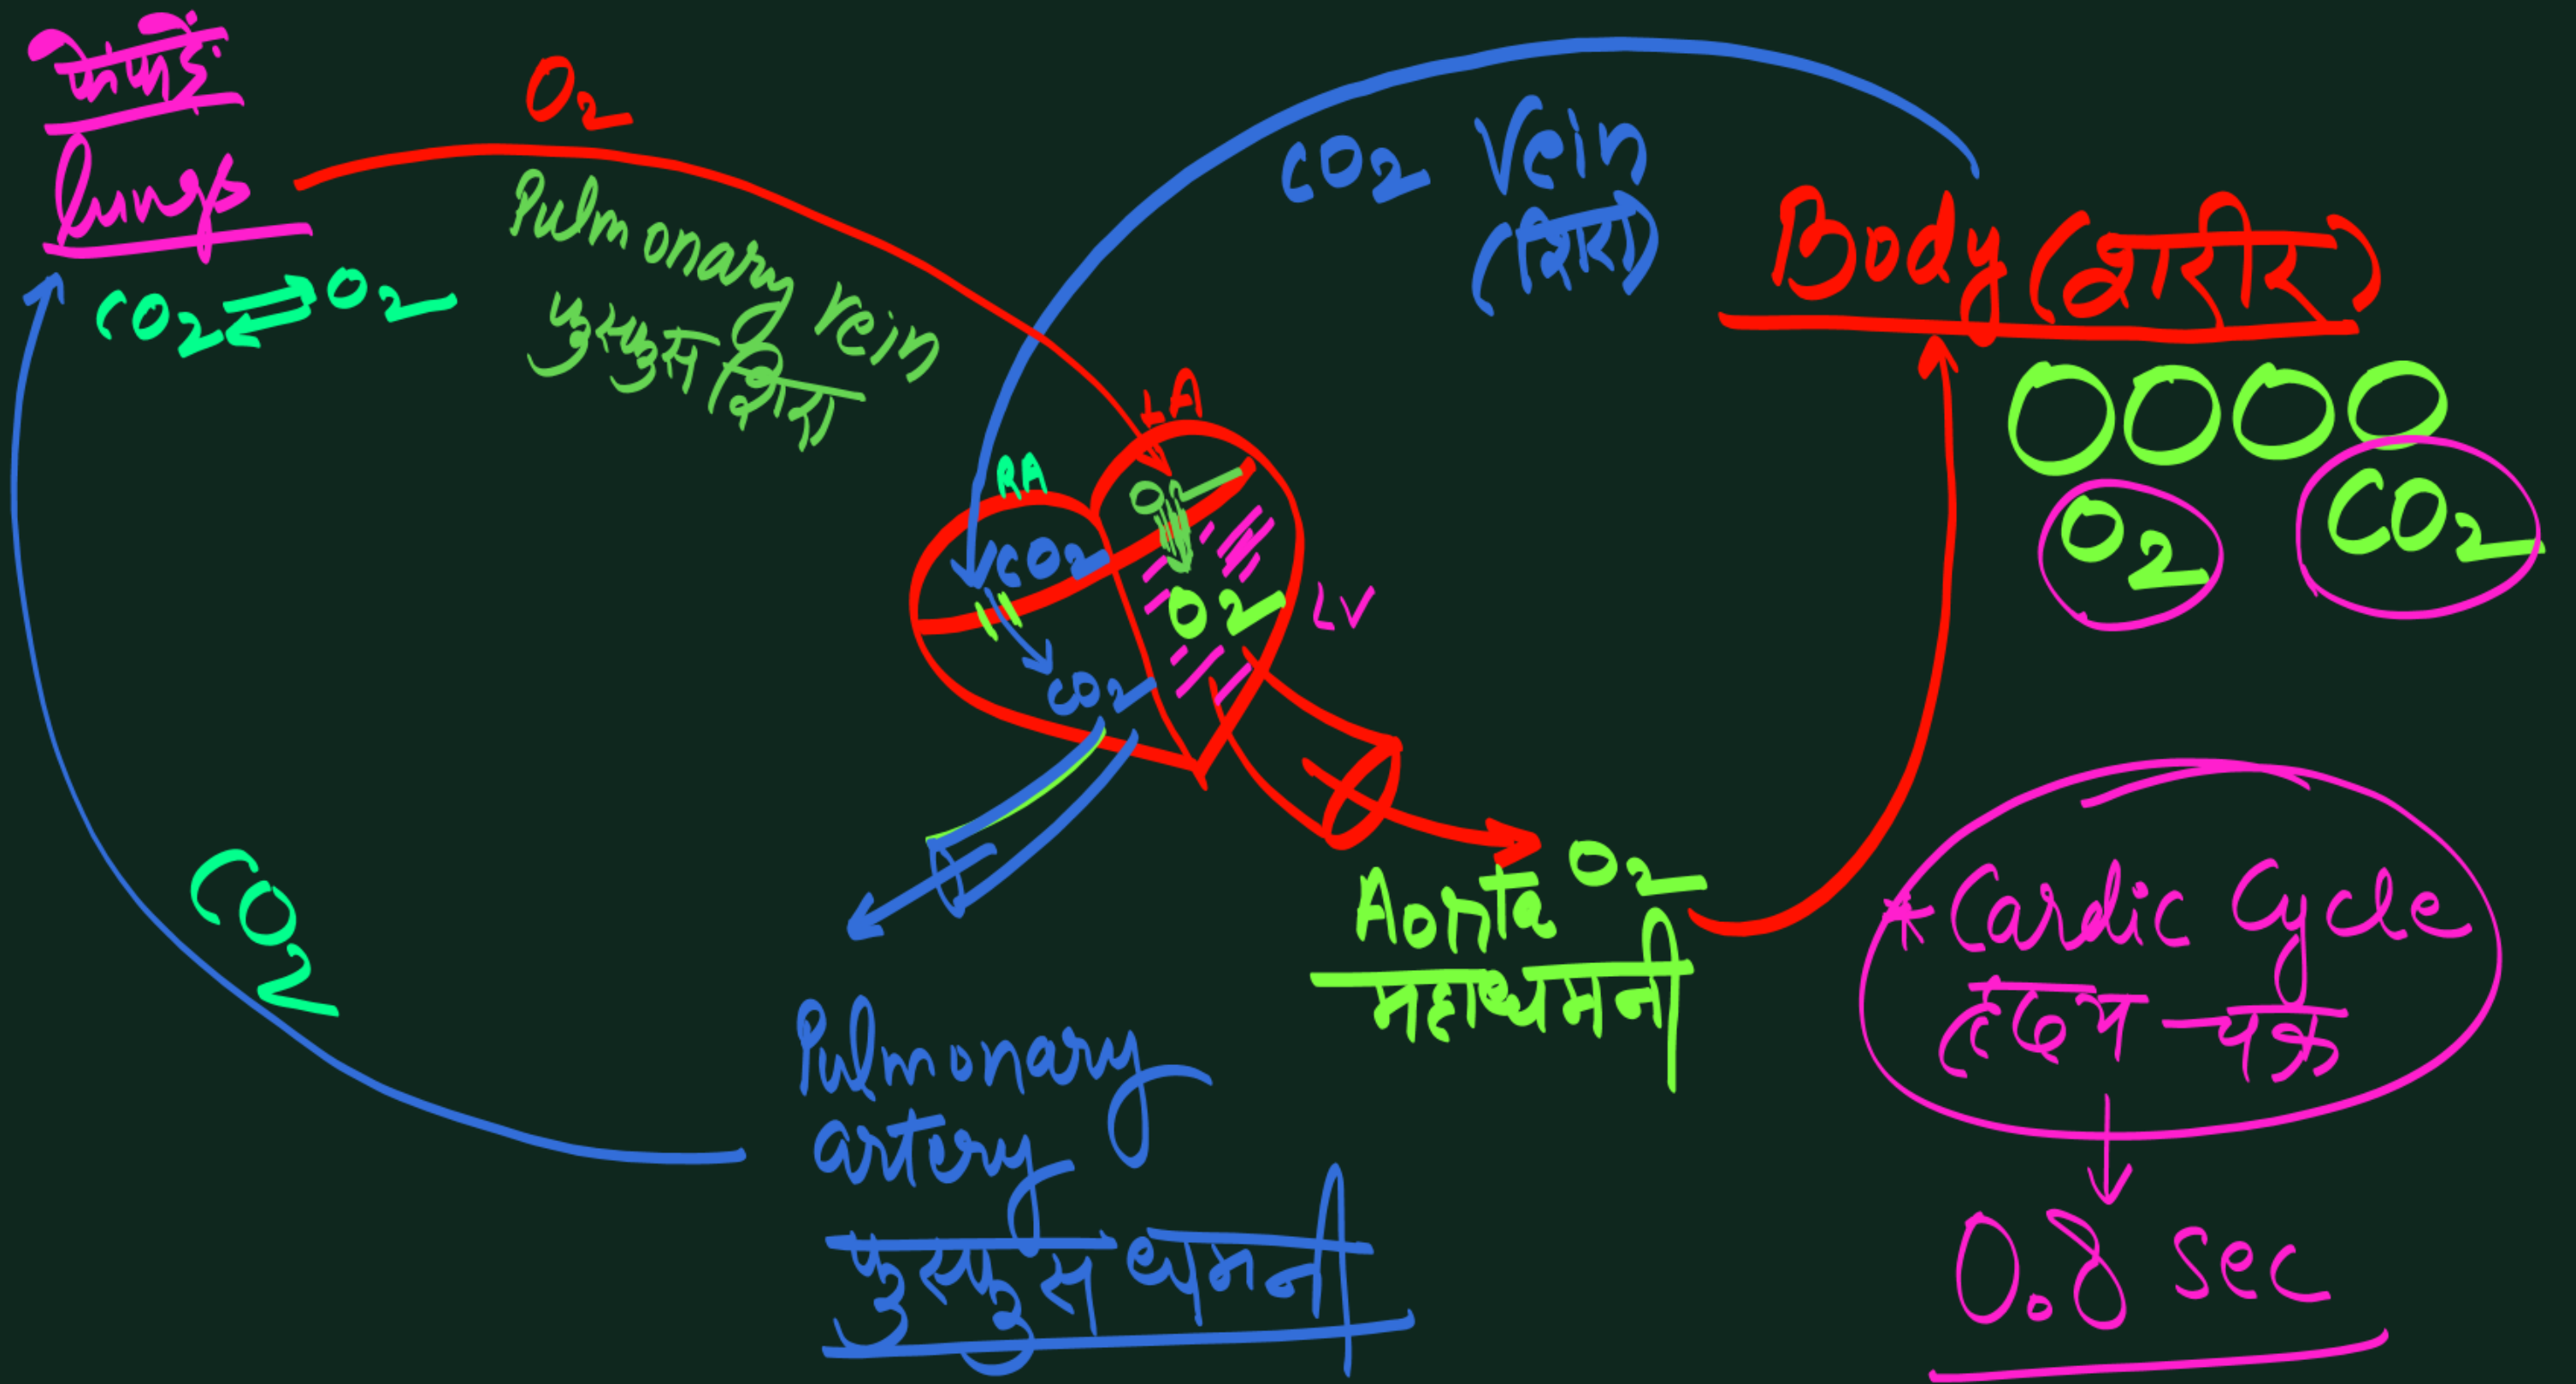 फेफड़े
lungs
CO2 ⇌ O2
O2
Pulmonary vein
फुस्फुस शिरा
CO2 Vein
(शिरा)
Body (शरीर)
O2 CO2
LA
RA
O2
CO2
O2
LV
CO2
Aorta O2
महाधमनी
CO2
Pulmonary
artery
फुस्फुस धमनी
* Cardic Cycle
हृदय - चक्र
0.8 sec